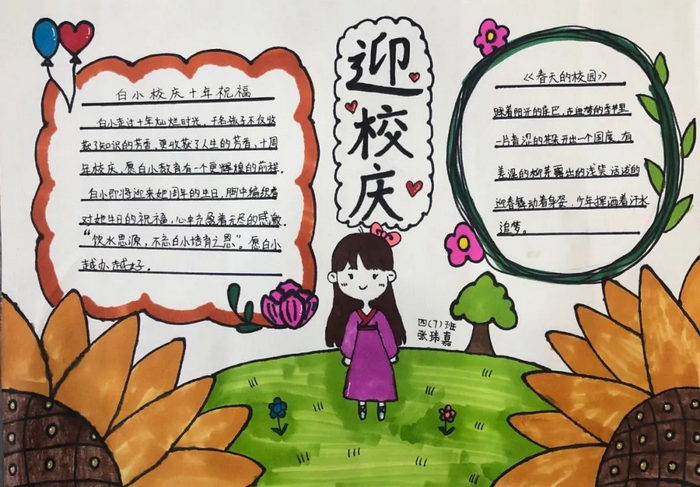 白小校庆十年祝福
白小走过十年灿烂时光,千名孩子不仅收
获了知识的芳香,更收获了人生的芳香,十周
年校庆,愿白小教育有一个更辉煌的前程.
白小即将迎来她周年的生日,胸中
对她生日的祝福,心中充盈着无尽的感激.
“饮水思源,不忘白小培育之恩”。愿白小
越办越好.
迎校庆
《春天的校园》
踩着阳光的尾巴,在的季节里
一片青涩的开出一个国度,有
羞涩的露出的浅笑
迎春着身姿,少年挥洒着汗水
追梦。
四(7)班
张琦嘉